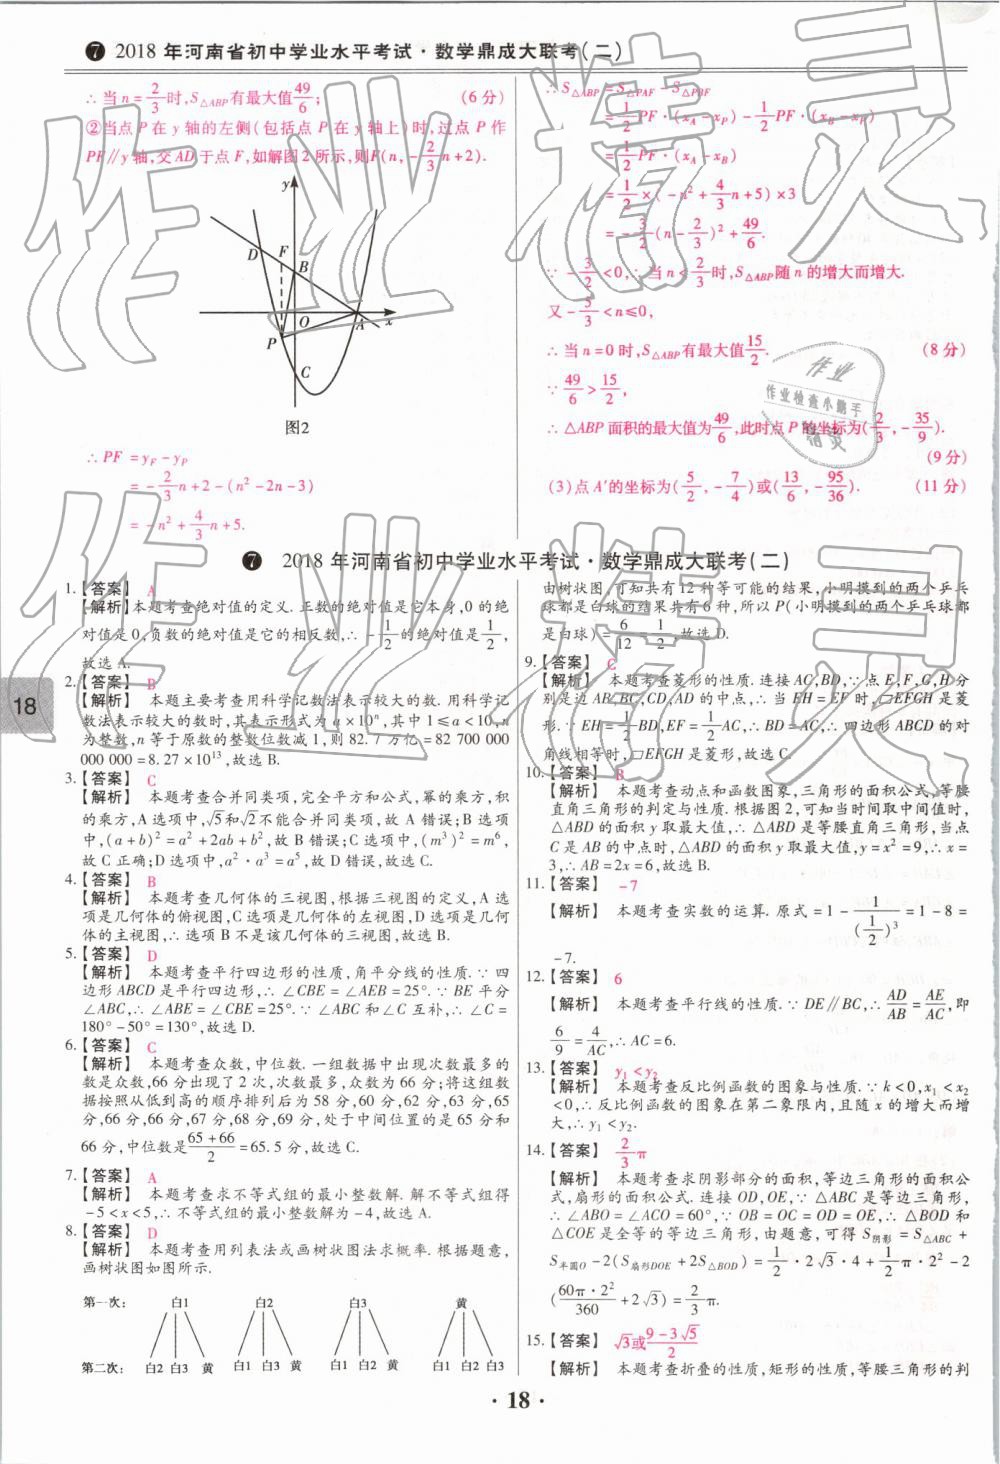 ❼ 2018 年河南省初中学业水平考试·数学鼎成大联考(二)
∴ 当 n = 2/3 时, S△ABP 有最大值 49/6; (6 分)
②当点 P 在 y 轴的左侧(包括点 P 在 y 轴上)时,过点 P 作
PF∥y 轴,交 AD 于点 F,如解图 2 所示,则 F(n, -2/3 n+2).
y
D F B
O A x
P
C
图2
∴ PF = yF - yP
= -2/3 n+2-(n²-2n-3)
= -n²+4/3 n+5.
∴ S△ABP = S△PAF - S△PBF
= 1/2 PF·(xA-xP) - 1/2 PF·(xB-xP)
= 1/2 PF·(xA-xB)
= 1/2 ×(-n²+4/3 n+5)×3
= -3/2 (n-2/3)²+49/6.
∵ -3/2<0,∴ 当 n<2/3 时,S△ABP 随 n 的增大而增大.
又 -5/3<n≤0,
∴ 当 n=0 时,S△ABP 有最大值 15/2. (8 分)
∵ 49/6 > 15/2,
∴ △ABP 面积的最大值为 49/6,此时点 P 的坐标为(2/3, -35/9).
(9 分)
(3)点 A′的坐标为(5/2, -7/4)或(13/6, -95/36). (11 分)
❼ 2018 年河南省初中学业水平考试·数学鼎成大联考(二)
1.【答案】 A
【解析】本题考查绝对值的定义. 正数的绝对值是它本身,0 的绝
对值是 0,负数的绝对值是它的相反数,∴ -1/2 的绝对值是 1/2,
故选 A.
2.【答案】 B
【解析】 本题主要考查用科学记数法表示较大的数. 用科学记
数法表示较大的数时,其表示形式为 a×10ⁿ,其中 1≤a<10,n
为整数,n 等于原数的整数位数减 1,则 82.7 万亿=82 700 000
000 000=8.27×10¹³,故选 B.
3.【答案】 C
【解析】 本题考查合并同类项,完全平方和公式,幂的乘方,积
的乘方,A 选项中,√5和√2不能合并同类项,故 A 错误;B 选项
中,(a+b)²=a²+2ab+b²,故 B 错误;C 选项中,(m³)²=m⁶,
故 C 正确;D 选项中,a²·a³=a⁵,故 D 错误,故选 C.
4.【答案】 B
【解析】 本题考查几何体的三视图,根据三视图的定义,A 选
项是几何体的俯视图,C 选项是几何体的左视图,D 选项是几何
体的主视图,∴ 选项 B 不是该几何体的三视图,故选 B.
5.【答案】 D
【解析】 本题考查平行四边形的性质,角平分线的性质. ∵ 四
边形 ABCD 是平行四边形,∴ ∠CBE=∠AEB=25°. ∵ BE 平分
∠ABC,∴ ∠ABE=∠CBE=25°. ∵ ∠ABC 和∠C 互补,∴ ∠C=
180°-50°=130°,故选 D.
6.【答案】 C
【解析】 本题考查众数,中位数. 一组数据中出现次数最多的
数是众数,66 分出现了 2 次,次数最多,众数为 66 分;将这组数
据按照从低到高的顺序排列后为 58 分,60 分,62 分,63 分,65
分,66 分,66 分,67 分,68 分,69 分,处于中间位置的是 65 分和
66 分,中位数是 (65+66)/2 =65.5 分,故选 C.
7.【答案】 A
【解析】 本题考查求不等式组的最小整数解. 解不等式组得
-5<x<5,∴ 不等式组的最小整数解为-4,故选 A.
8.【答案】 D
【解析】 本题考查用列表法或画树状图法求概率. 根据题意,
画树状图如图所示.
第一次: 白1 白2 白3 黄
第二次: 白2 白3 黄 白1 白3 黄 白1 白2 黄 白1 白2 白3
由树状图,可知共有 12 种等可能的结果,小明摸到的两个乒乓
球都是白球的结果共有 6 种,所以 P(小明摸到的两个乒乓球都
是白球)= 6/12 = 1/2,故选 D.
9.【答案】 C
【解析】 本题考查菱形的性质. 连接 AC,BD,∵ 点 E,F,G,H 分
别是边 AB,BC,CD,AD 的中点,∴ 当 EH=EF 时,□EFGH 是菱
形. ∵ EH=1/2 BD,EF=1/2 AC,∴ BD=AC,∴ 四边形 ABCD 的对
角线相等时,□EFGH 是菱形,故选 C.
10.【答案】 B
【解析】 本题考查动点和函数图象,三角形的面积公式,等腰
直角三角形的判定与性质. 根据图 2,可知当时间取中间值时,
△ABD 的面积 y 取最大值,∴ △ABD 是等腰直角三角形,当点
C 是 AB 的中点时,△ABD 的面积 y 取最大值,y=x²=9,∴ x=
3,∴ AB=2x=6,故选 B.
11.【答案】 -7
【解析】 本题考查实数的运算. 原式=1-1/(1/2)³=1-8=
-7.
12.【答案】 6
【解析】 本题考查平行线的性质. ∵ DE∥BC,∴ AD/AB=AE/AC,即
6/9=4/AC,∴ AC=6.
13.【答案】 y₁<y₂
【解析】 本题考查反比例函数的图象与性质. ∵ k<0,x₁<x₂
<0,∴ 反比例函数的图象在第二象限内,且随 x 的增大而增
大,∴ y₁<y₂.
14.【答案】 2/3 π
【解析】 本题考查求阴影部分的面积,等边三角形的面积公
式,扇形的面积公式. 连接 OD,OE,∵ △ABC 是等边三角形,
∴ ∠ABO=∠ACO=60°,∵ OB=OC=OD=OE,∴ △BOD 和
△COE 是全等的等边三角形,由题意,可得 S阴影=S△ABC+
S半圆O-2(S扇形DOE+2S△BOD)=1/2·2√3·4+1/2 π·2²-2
(60π·2²/360+2√3)=2/3 π.
15.【答案】 √3或(9-3√5)/2
【解析】 本题考查折叠的性质,矩形的性质,等腰三角形的判
18
· 18 ·
作业精灵
作业精灵
作业
作业检查小助手
精灵